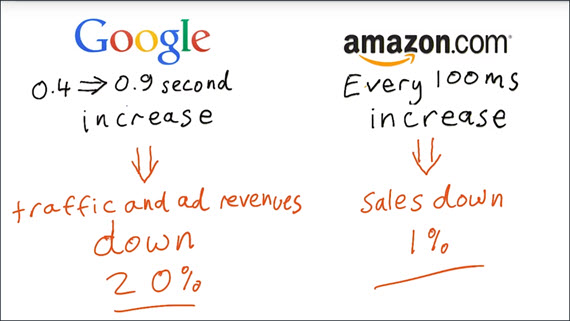 Google
0.4 ⇒ 0.9 second
increase
traffic and ad revenues
down
20%
amazon.com
Every 100ms
increase
sales down
1%